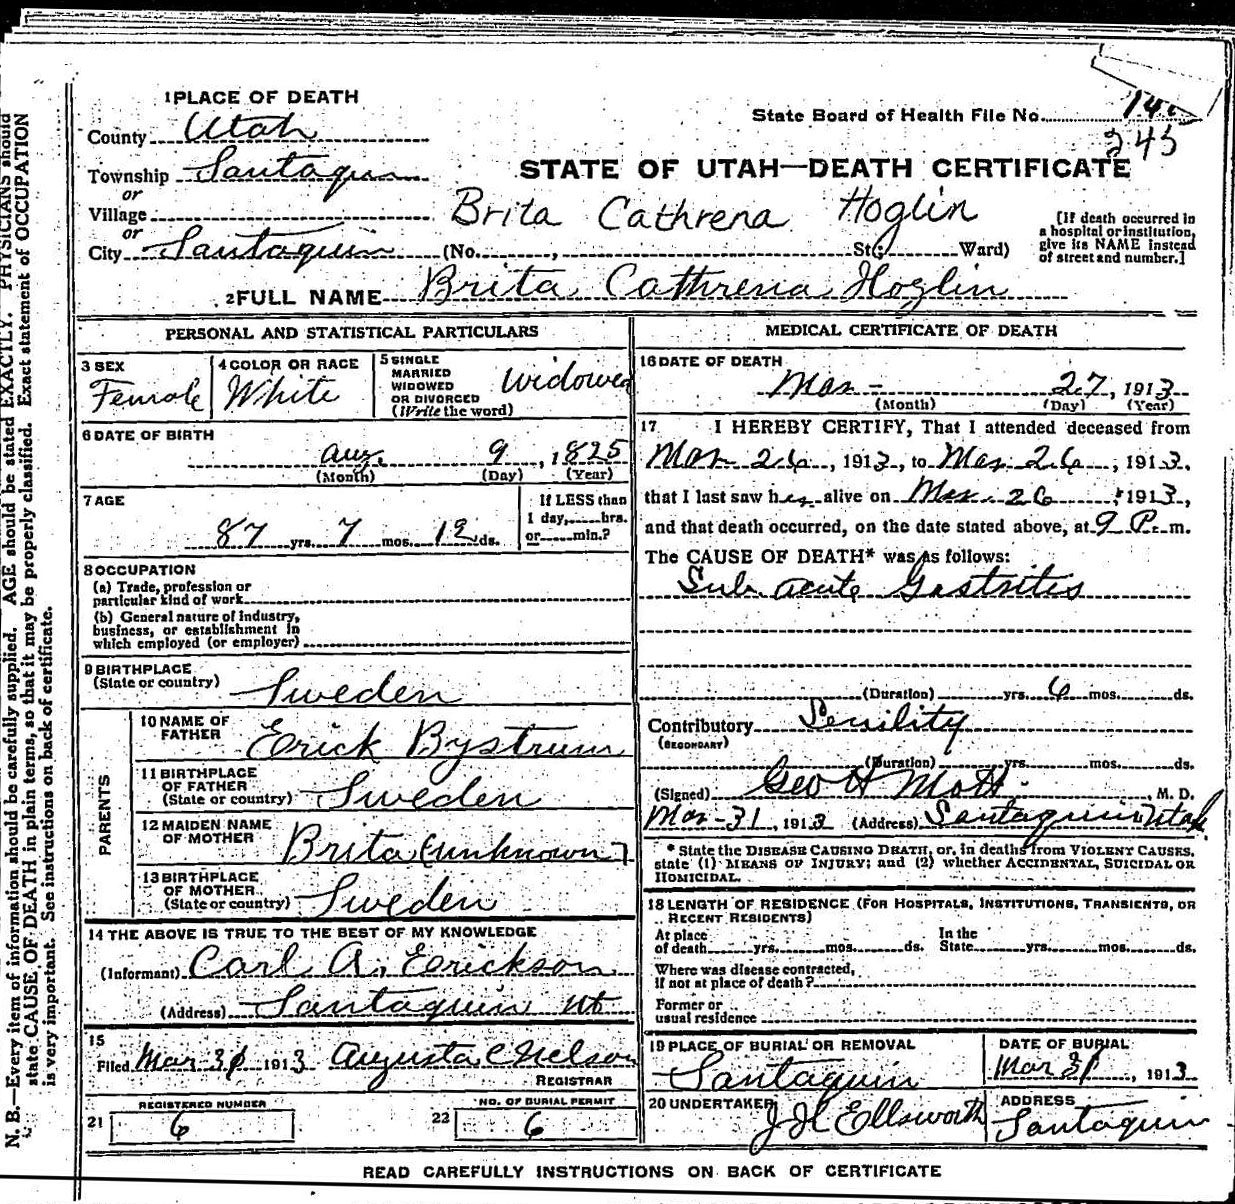 1 PLACE OF DEATH
County Utah
State Board of Health File No. 14
245
Township Santaquin
STATE OF UTAH—DEATH CERTIFICATE
or
Village
Brita Cathrena Hoglin
or
City Santaquin (No. , St; Ward)
[If death occurred in
a hospital or institution,
give its NAME instead
of street and number.]
2 FULL NAME Brita Cathrena Hoglin
PERSONAL AND STATISTICAL PARTICULARS
3 SEX
Female
4 COLOR OR RACE
White
5 SINGLE
MARRIED
WIDOWED
OR DIVORCED
(Write the word)
Widowed
6 DATE OF BIRTH
Aug. 9, 1825
(Month) (Day) (Year)
7 AGE
87 yrs. 7 mos. 12 ds.
If LESS than
1 day, hrs.
or min.?
8 OCCUPATION
(a) Trade, profession or
particular kind of work
(b) General nature of industry,
business, or establishment in
which employed (or employer)
9 BIRTHPLACE
(State or country) Sweden
PARENTS
10 NAME OF
FATHER Erick Bystrum
11 BIRTHPLACE
OF FATHER
(State or country) Sweden
12 MAIDEN NAME
OF MOTHER Brita (unknown)
13 BIRTHPLACE
OF MOTHER
(State or country) Sweden
14 THE ABOVE IS TRUE TO THE BEST OF MY KNOWLEDGE
(Informant) Carl A. Erickson
(Address) Santaquin Ut
15
Filed Mar 31 1913 Augusta C Nelson
REGISTRAR
REGISTERED NUMBER
21 6
NO. OF BURIAL PERMIT
22 6
MEDICAL CERTIFICATE OF DEATH
16 DATE OF DEATH
Mar - 27, 1913
(Month) (Day) (Year)
17 I HEREBY CERTIFY, That I attended deceased from
Mar 26, 1913, to Mar 26, 1913,
that I last saw her alive on Mar. 26, 1913,
and that death occurred, on the date stated above, at 9 P. m.
The CAUSE OF DEATH* was as follows:
Sub acute Gastritis
(Duration) yrs. 6 mos. ds.
Contributory Senility
(SECONDARY)
(Duration) yrs. mos. ds.
(Signed) Geo H Mott. M. D.
Mar-31, 1913 (Address) Santaquin Utah
* State the DISEASE CAUSING DEATH, or, in deaths from VIOLENT CAUSES,
state (1) MEANS OF INJURY; and (2) whether ACCIDENTAL, SUICIDAL OR
HOMICIDAL.
18 LENGTH OF RESIDENCE (FOR HOSPITALS, INSTITUTIONS, TRANSIENTS, OR
RECENT RESIDENTS)
At place
of death yrs. mos. ds.
In the
State yrs. mos. ds.
Where was disease contracted,
if not at place of death?
Former or
usual residence
19 PLACE OF BURIAL OR REMOVAL
Santaquin
DATE OF BURIAL
Mar 31, 1913
20 UNDERTAKER
J H Ellsworth
ADDRESS
Santaquin
READ CAREFULLY INSTRUCTIONS ON BACK OF CERTIFICATE
N. B.—Every item of information should be carefully supplied. AGE should be stated EXACTLY. PHYSICIANS should
state CAUSE OF DEATH in plain terms, so that it may be properly classified. Exact statement of OCCUPATION
is very important. See instructions on back of certificate.